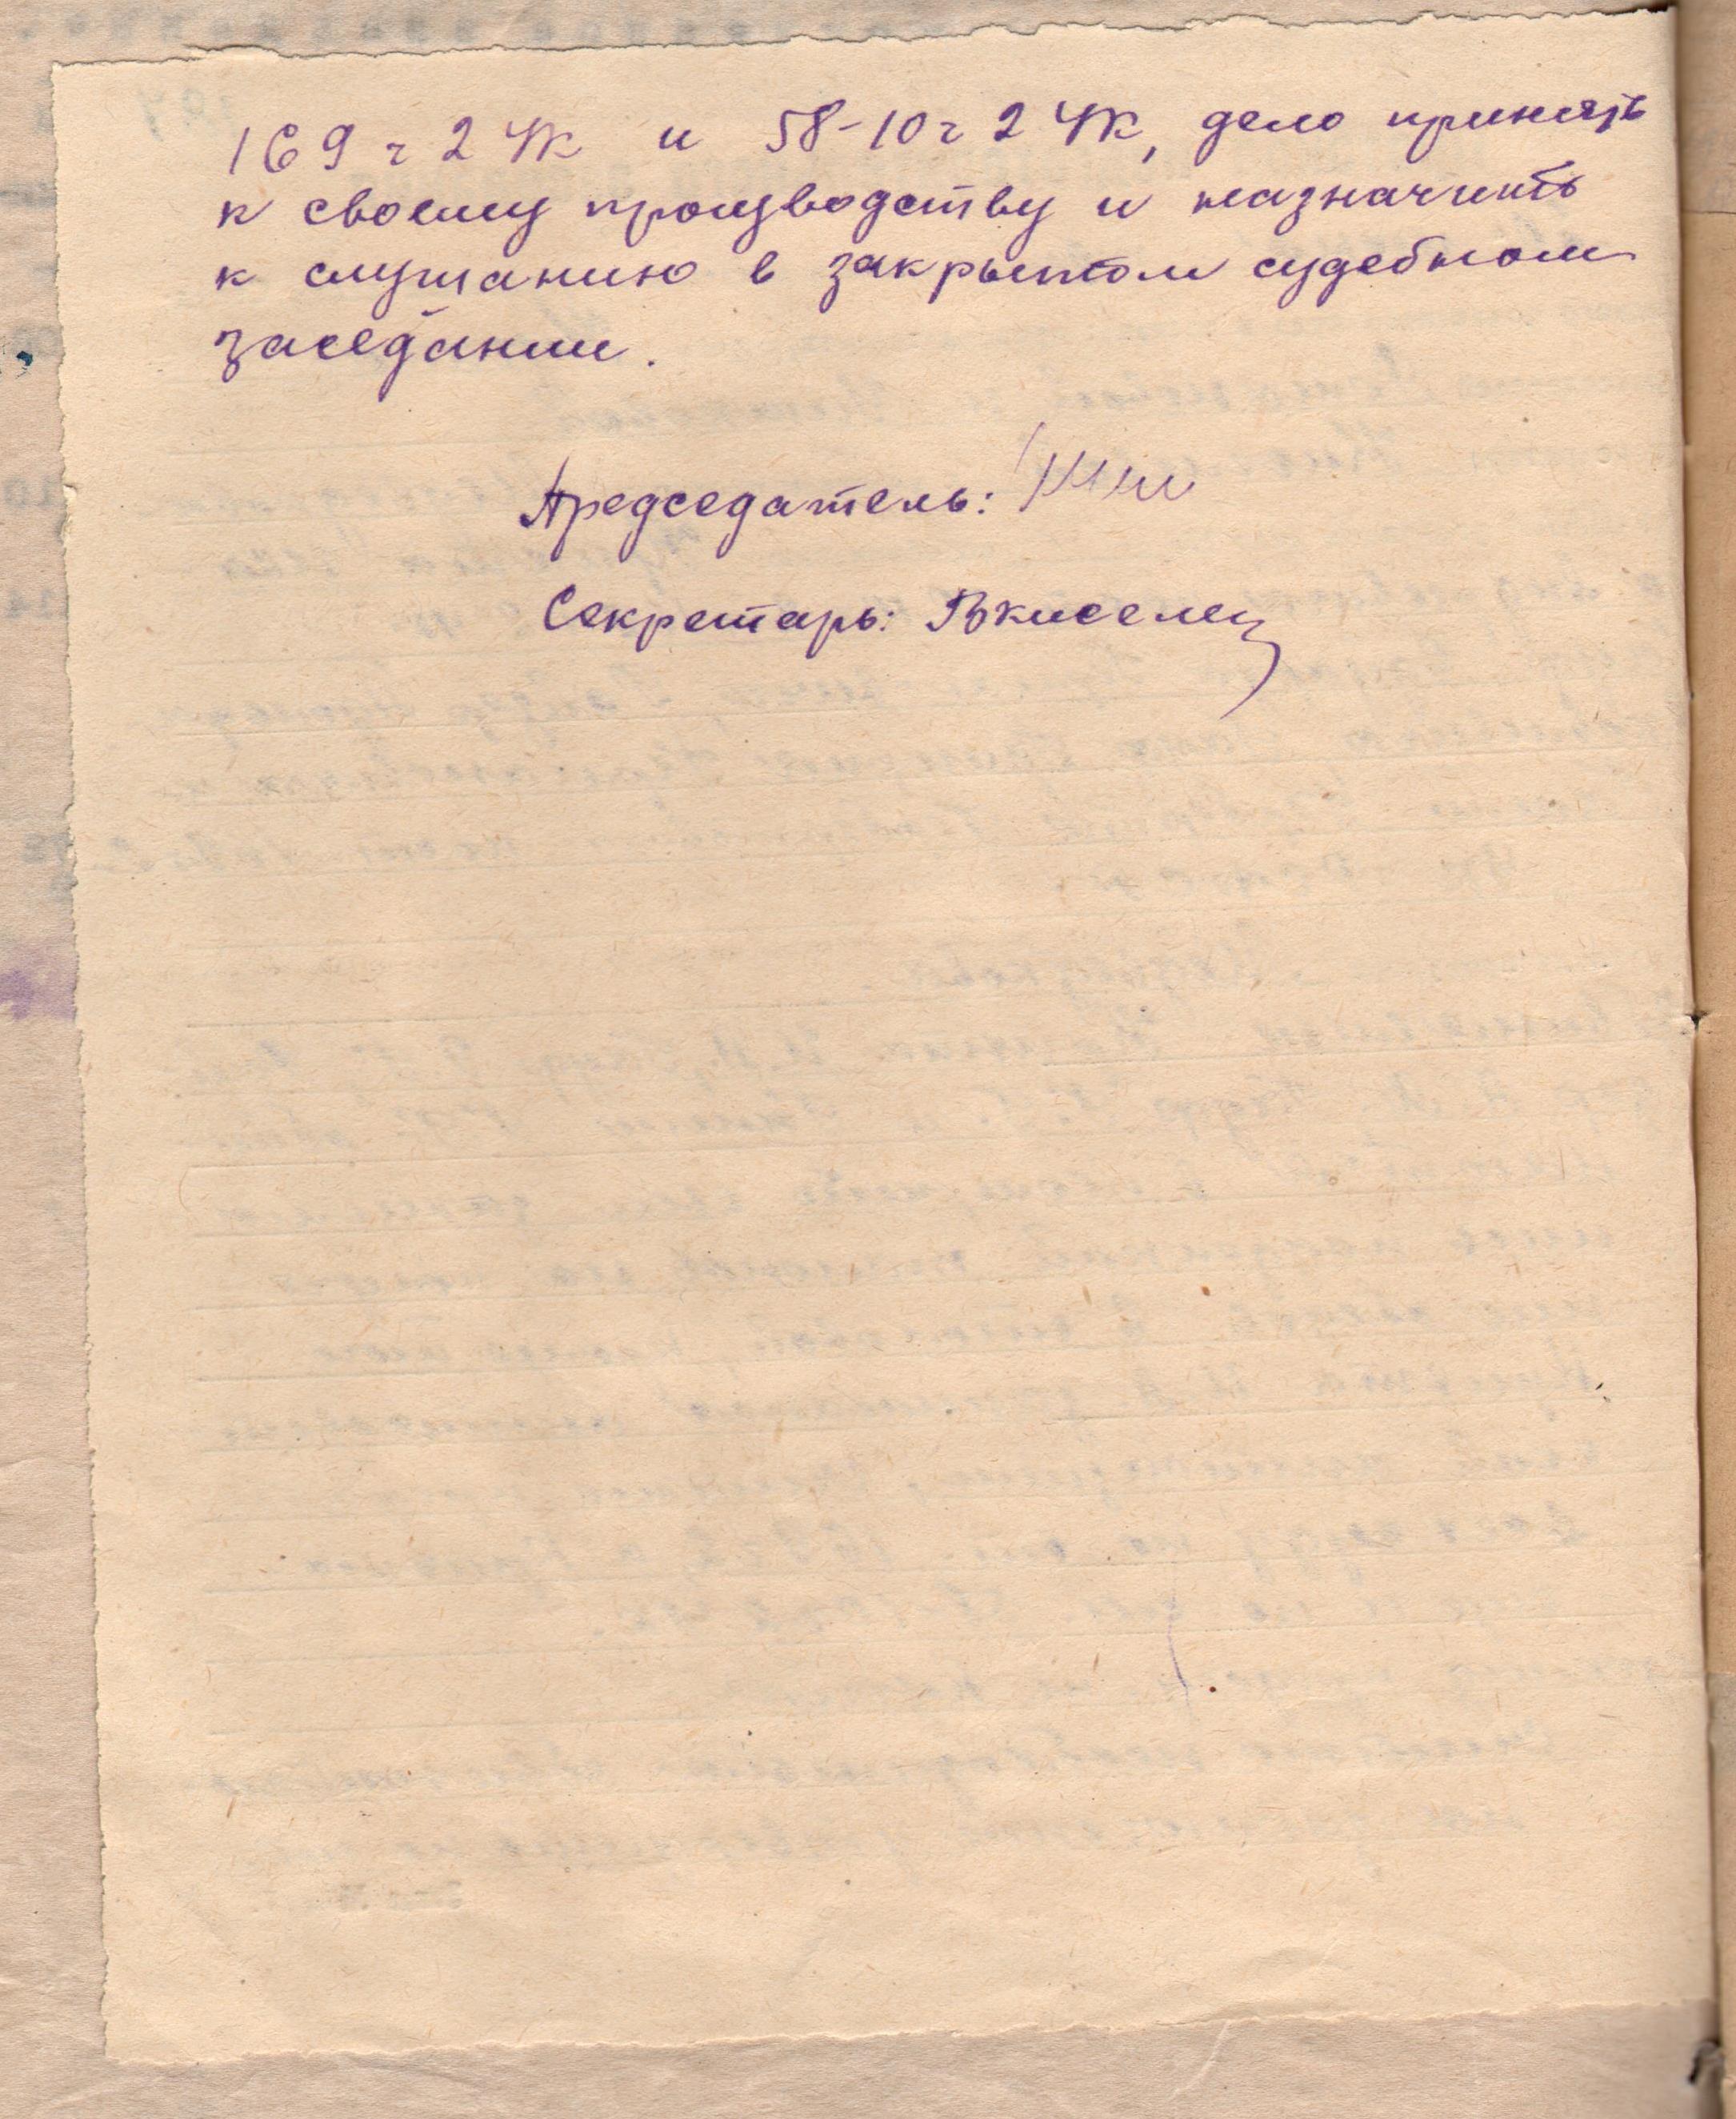 169 ч 2 УК и 58-10 ч 2 УК, дело принять
к своему производству и назначить
к слушанию в закрытом судебном
заседании.
Председатель:
Секретарь: ВКиселец